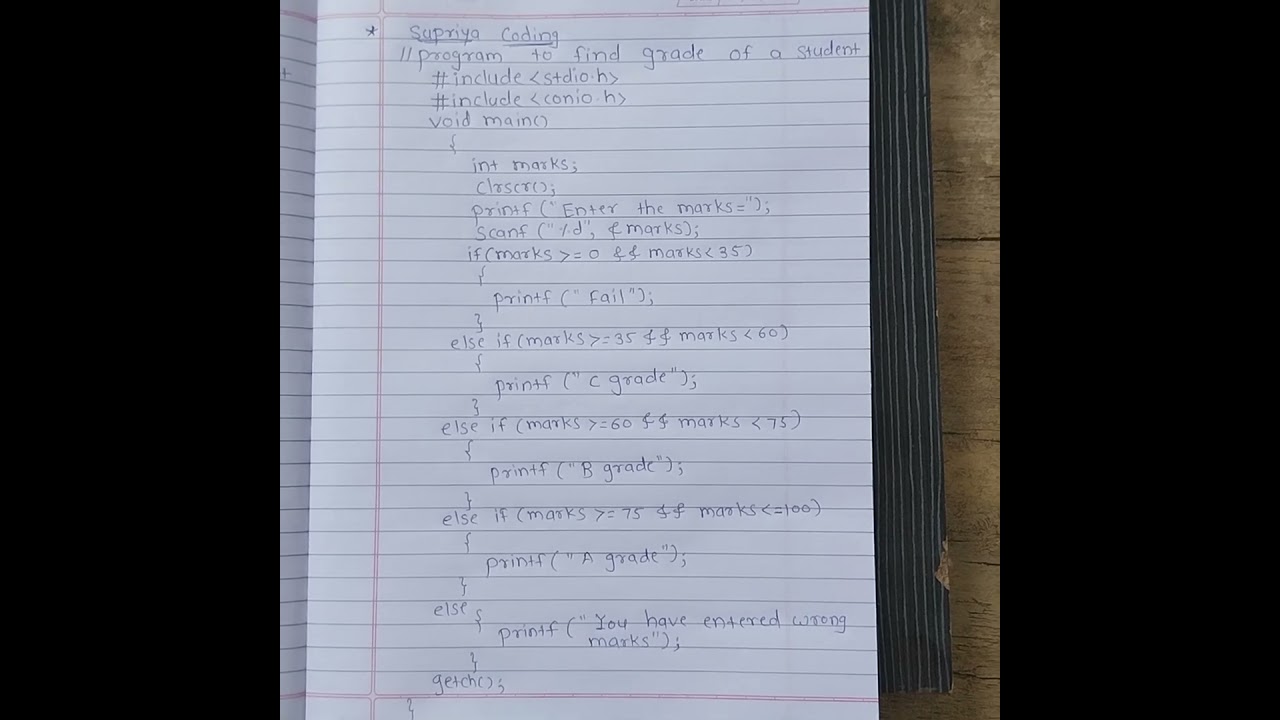 * Supriya Coding
// program to find grade of a student
#include <stdio.h>
#include <conio.h>
void main()
{
int marks;
clrscr();
printf ("Enter the marks=");
scanf ("%d", &marks);
if(marks >= 0 && marks < 35)
{
printf (" Fail");
}
else if (marks >= 35 && marks < 60)
{
printf (" C grade");
}
else if (marks >= 60 && marks < 75)
{
printf ("B grade");
}
else if (marks >= 75 && marks <= 100)
{
printf ("A grade");
}
else
{
printf (" You have entered wrong
marks");
}
getch();
}